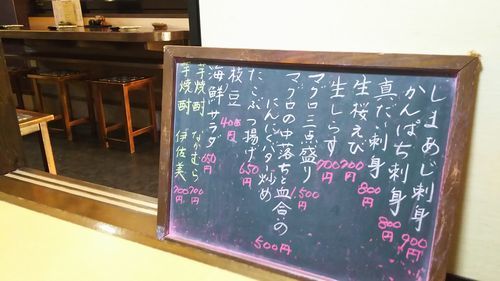 しまあじ刺身 900円
かんぱち刺身 800円
真だい刺身 800円
生桜えび 700円
生しらす 700円
マグロ三点盛り 1,500円
マグロの中落ちと血合の
にんにくバター炒め 500円
たこぶつ揚げ 650円
枝豆 400円
海鮮サラダ 650円
芋焼酎 なかむら 700円
芋焼酎 伊佐美 700円